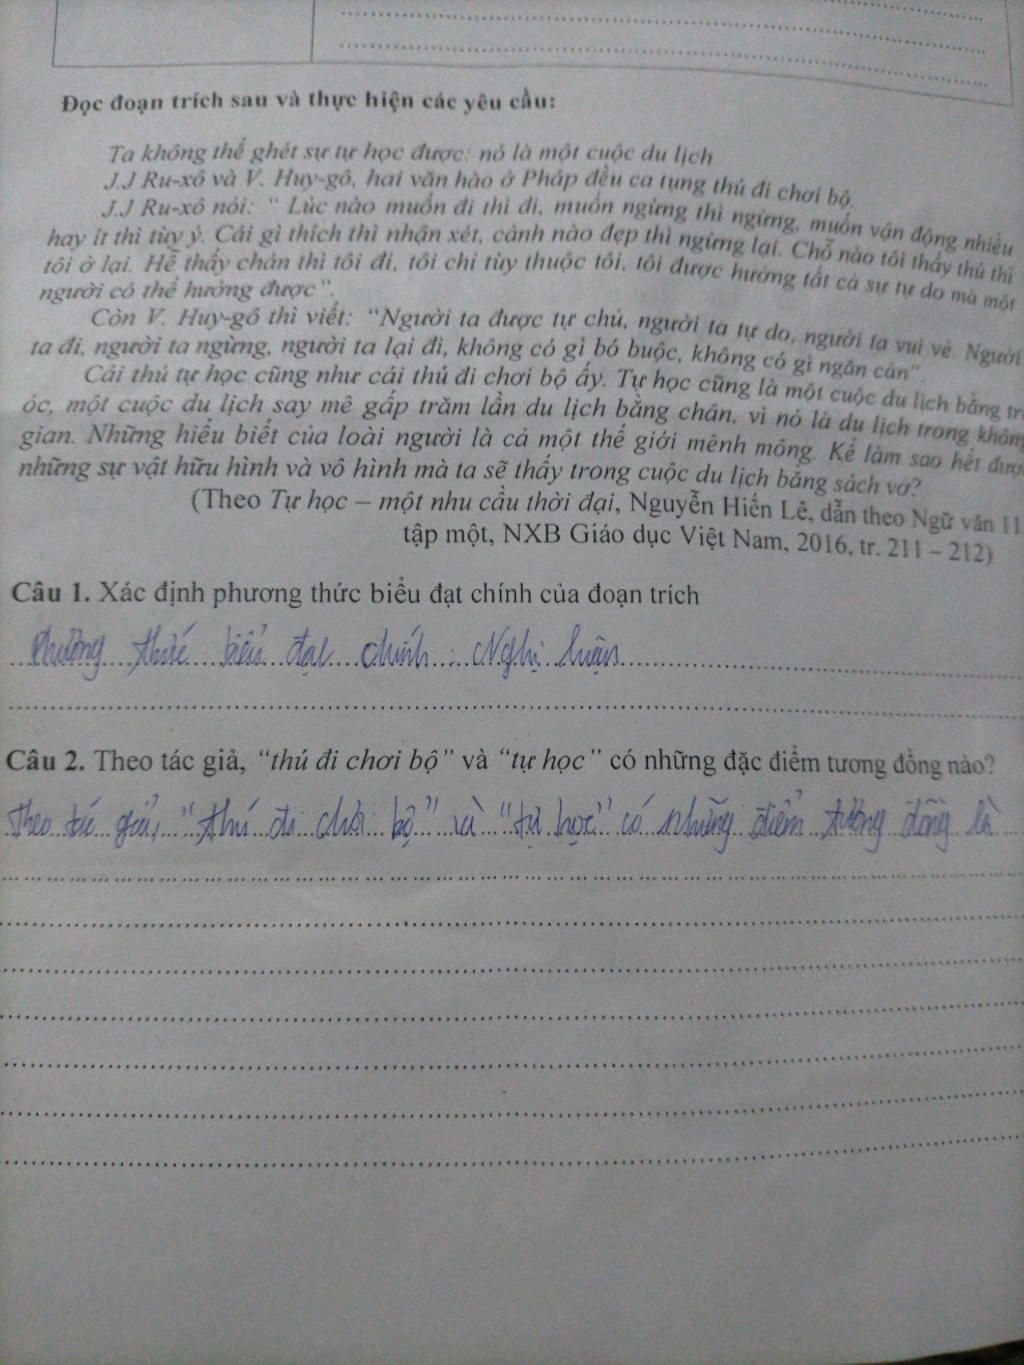 Đọc đoạn trích sau và thực hiện các yêu cầu:
Ta không thể ghét sự tự học được: nó là một cuộc du lịch
J.J Ru-xô và V. Huy-gô, hai văn hào ở Pháp đều ca tụng thú đi chơi bộ.
J.J Ru-xô nói: " Lúc nào muốn đi thì đi, muốn ngừng thì ngừng, muốn vận động nhiều
hay ít thì tùy ý. Cái gì thích thì nhận xét, cảnh nào đẹp thì ngừng lại. Chỗ nào tôi thấy thú thì
tôi ở lại. Hễ thấy chán thì tôi đi, tôi chỉ tùy thuộc tôi, tôi được hưởng tất cả sự tự do mà một
người có thể hưởng được".
Còn V. Huy-gô thì viết: "Người ta được tự chủ, người ta tự do, người ta vui vẻ. Người
ta đi, người ta ngừng, người ta lại đi, không có gì bó buộc, không có gì ngăn cản"
Cái thú tự học cũng như cái thú đi chơi bộ ấy. Tự học cũng là một cuộc du lịch bằng trí
óc, một cuộc du lịch say mê gấp trăm lần du lịch bằng chân, vì nó là du lịch trong không
gian. Những hiểu biết của loài người là cả một thế giới mênh mông. Kể làm sao hết được
những sự vật hữu hình và vô hình mà ta sẽ thấy trong cuộc du lịch bằng sách vở?
(Theo Tự học – một nhu cầu thời đại, Nguyễn Hiến Lê, dẫn theo Ngữ văn 11
tập một, NXB Giáo dục Việt Nam, 2016, tr. 211 – 212)
Câu 1. Xác định phương thức biểu đạt chính của đoạn trích
Phương thức biểu đạt chính : Nghị luận
Câu 2. Theo tác giả, "thú đi chơi bộ" và "tự học" có những đặc điểm tương đồng nào?
Theo tác giả, "thú đi chơi bộ" và "tự học" có những điểm tương đồng là